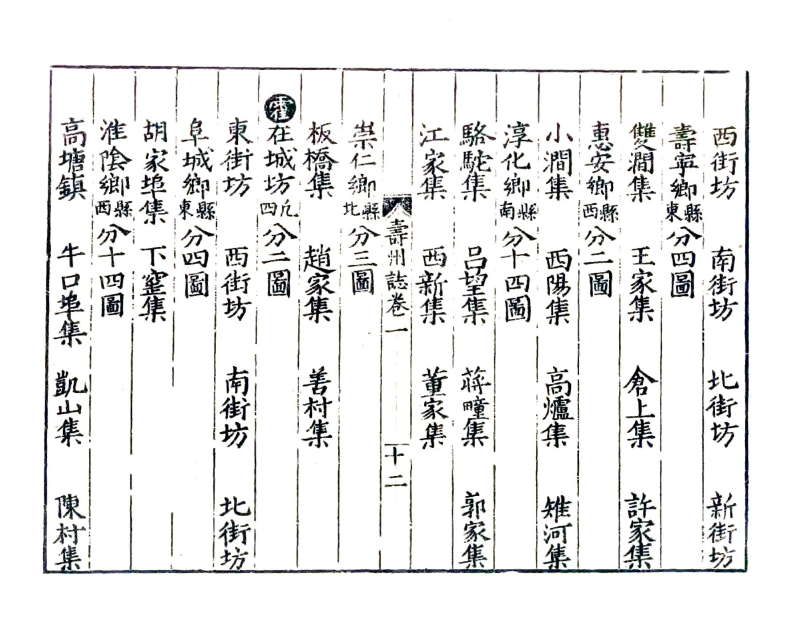 西街坊 南街坊 北街坊 新街坊
壽寧鄉縣東分四圖
雙澗集 王家集 倉上集 許家集
惠安鄉縣西分二圖
小澗集 西陽集 高爐集 雉河集
淳化鄉縣南分十四圖
駱駝集 呂望集 蔣疃集 郭家集
江家集 西新集 董家集
壽州誌卷一 十二
崇仁鄉縣北分三圖
板橋集 趙家集 善村集
霍在城坊凡四分二圖
東街坊 西街坊 南街坊 北街坊
阜城鄉縣東分四圖
胡家埠集 下窰集
淮陰鄉縣西分十四圖
高塘鎮 牛口埠集 凱山集 陳村集